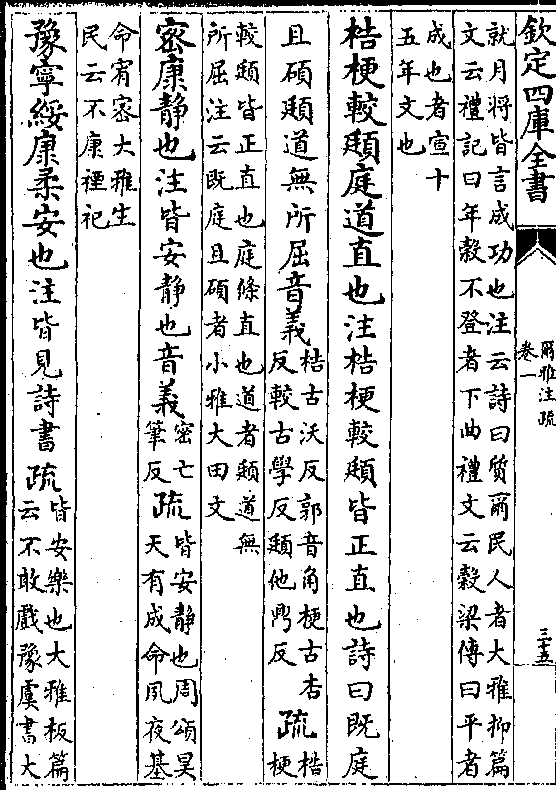 欽定四庫全書
爾雅注疏
卷一
三十五
就月將皆言成功也注云詩曰質爾民人者大雅抑篇
文云禮記曰年穀不登者下曲禮文云穀梁傳曰平者
成也者宣十
五年文也
梏梗較頲庭道直也注梏梗較頲皆正直也詩曰既庭
且碩頲道無所屈音義
梏古沃反郭音角梗古杏
反較古學反頲他鼎反
疏
梏
梗
較頲皆正直也庭條直也道者頲道無
所屈注云既庭且碩者小雅大田文
密康靜也注皆安靜也音義
密亡
筆反
疏
皆安靜也周頌昊
天有成命夙夜基
命宥密大雅生
民云不康禋祀
豫寧綏康柔安也注皆見詩書疏
皆安樂也大雅板篇
云不敢戲豫虞書大